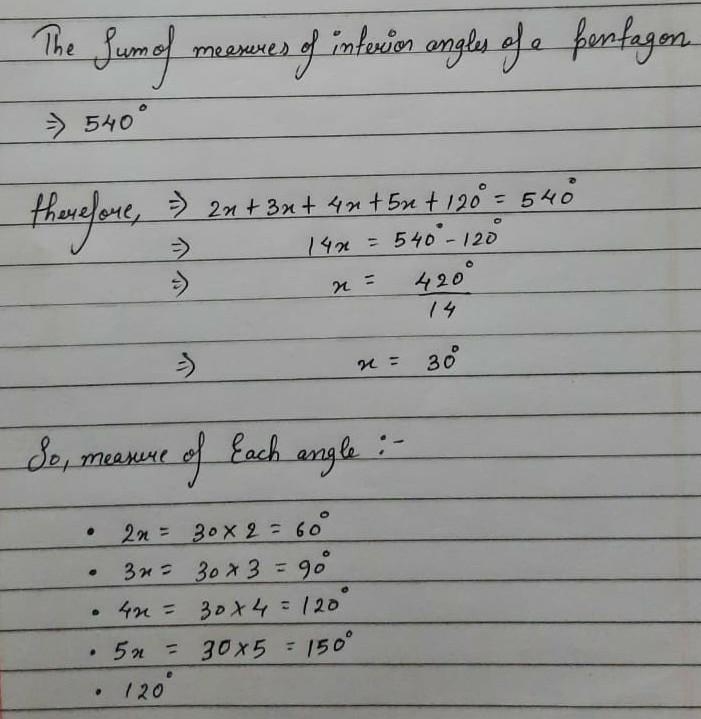 The Sum of measures of interior angles of a pentagon
⇒ 540°
therefore, ⇒ 2x + 3x + 4x + 5x + 120° = 540°
⇒ 14x = 540° - 120°
⇒ x = 420° / 14
⇒ x = 30°
So, measure of Each angle :-
• 2x = 30 x 2 = 60°
• 3x = 30 x 3 = 90°
• 4x = 30 x 4 = 120°
• 5x = 30 x 5 = 150°
• 120°